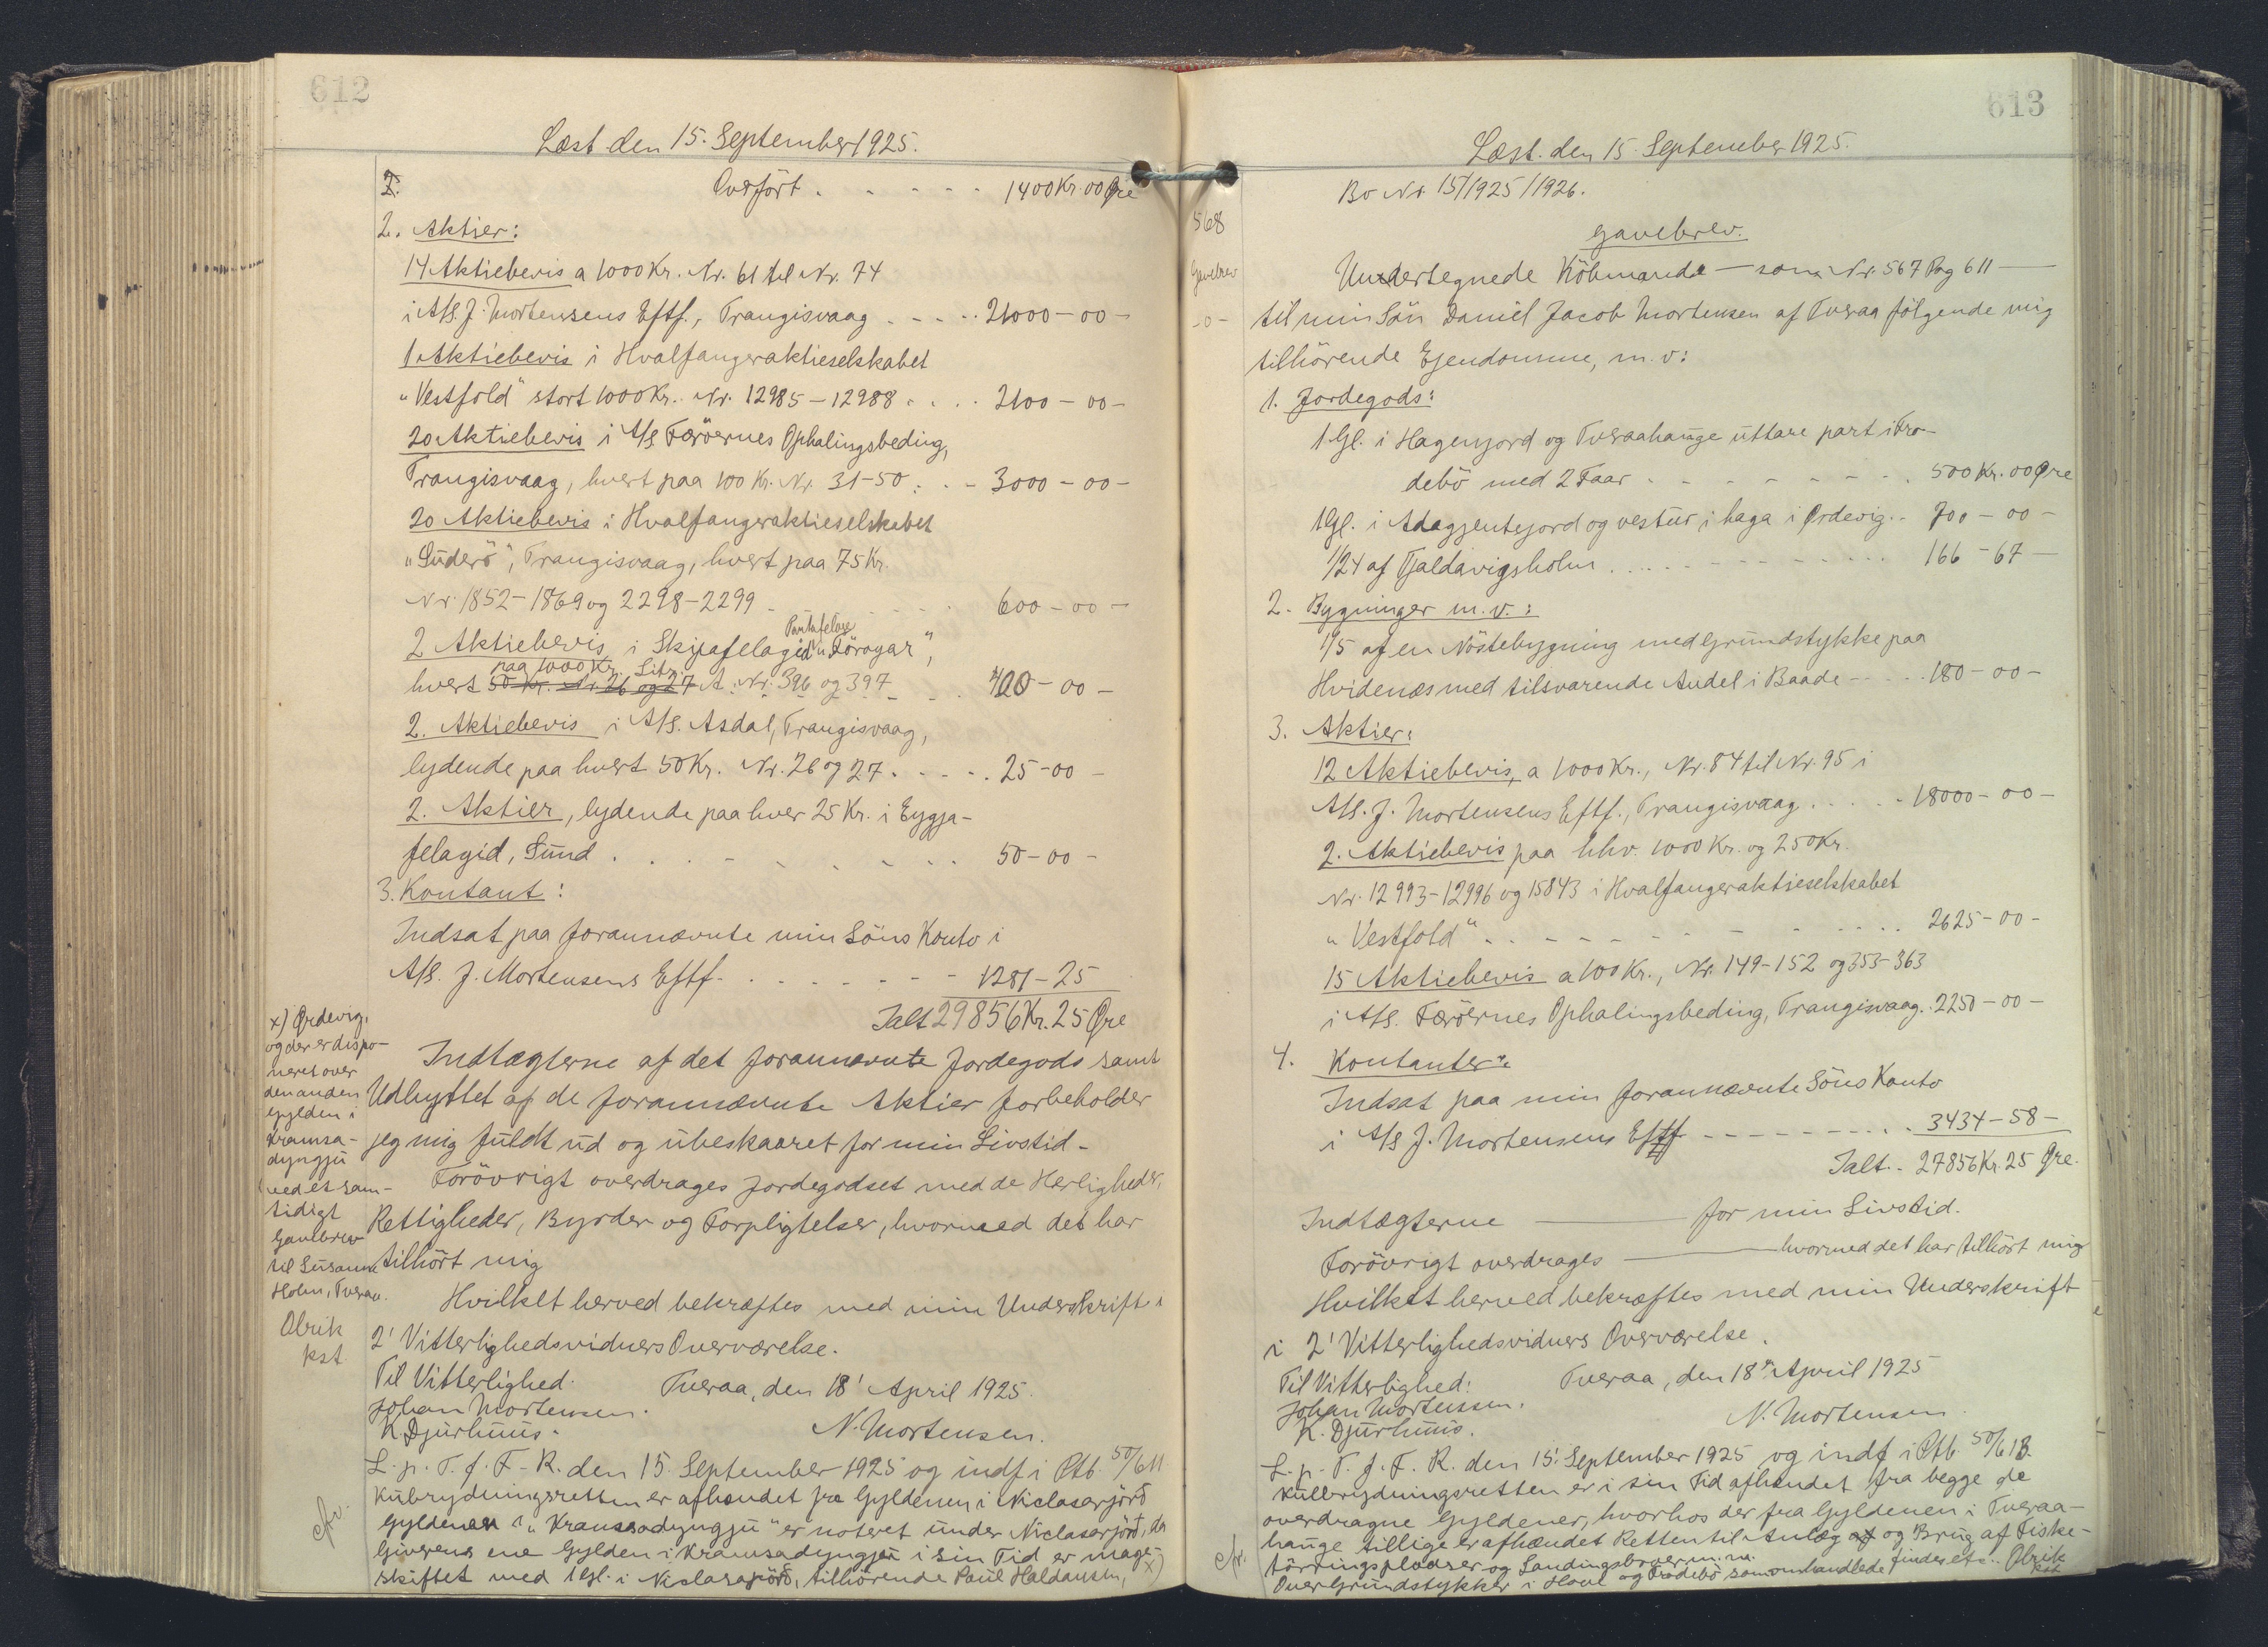 612
Læst den 15. September 1925.
I. Overført . . . . . . 1400 Kr. 00 Øre
2. Aktier:
14 Aktiebevis a 1000 Kr. Nr. 61 til Nr. 74
i A/S. J. Mortensens Eftf., Trangisvaag . . . . . 21000 - 00 -
1 Aktiebevis i Hvalfangeraktieselskabet
"Vestfold" stort 1000 Kr. Nr. 12985 - 12988 . . . . 2100 - 00 -
20 Aktiebevis i A/S Færöernes Ophalingsbeding,
Trangisvaag, hvert paa 100 Kr. Nr. 31-50 . . . 3000 - 00 -
20 Aktiebevis i Hvalfangeraktieselskabet
"Suderö", Trangisvaag, hvert paa 75 Kr.
Nr. 1852 - 1869 og 2298 - 2299 . . . . 600 - 00 -
2 Aktiebevis i Skipafelagid "Föroyar",
hvert 50 Kr. Nr. 26 og 27 paa 1000 Kr. Litr. A. Nr. 396 og 397 . . . 400 - 00 -
2. Aktiebevis i A/S. Asdal, Trangisvaag,
lydende paa hvert 50 Kr. Nr. 26 og 27 . . . . . 25 - 00 -
2. Aktier, lydende paa hver 25 Kr. i Bygja-
felagid, Sund . . . . . . . . . 50 - 00 -
3. Kontant:
Indsat paa forannævnte min Söns Konto i
A/S. J. Mortensens Eftf. . . . . . . 1281 - 25
Ialt 29856 Kr. 25 Øre
Indtægterne af det forannævnte Jordegods samt
Udbyttet af de forannævnte Aktier forbeholder
jeg mig fuldt ud og ubeskaaret for min Livstid -
Forövrigt overdrages Jordegodset med de Herligheder,
Rettigheder, Byrder og Forpligtelser, hvormed det har
tilhört mig
Hvilket herved bekræftes med min Underskrift i
2' Vitterlighedsvidners Overværelse.
Til Vitterlighed: Tveraa, den 18' April 1925.
Johan Mortensen.
K. Djurhuus. N. Mortensen.
L. p. T. f. F. R. den 15. September 1925 og indf i Ptb. 50/611
Kulbrydningsretten er afhændet fra Gyldenen i Niclasarjörd
Gyldenen i "Kramsadyngju" er noteret under Niclasarjörd, da
Giverens ene Gylden i Kramsadyngju i sin Tid er mage-
skiftet med 1 Gl. i Niclasarjörd, tilhörende Poul Haldansen, x)
x) Ørdevig,
og der er dispo-
neret over
den anden
Gylden i
Kramsa-
dyngju
ved et sam-
tidigt
Gavebrev
til Susanne
Holm, Tveraa.
Olrik
kst
cfr.
613
Læst. den 15. September 1925.
Bo Nr. 15/1925/1926.
568
Gavebrev
-0-
Gavebrev.
Undertegnede Köbmand - som Nr. 567 Pag 611 -
til min Sön Daniel Jacob Mortensen af Tveraa fölgende mig
tilhörende Ejendomme, m. v:
1. Jordegods:
1 Gl. i Hagenjord og Tveraahauge uttare part i Fro-
debö med 2 Faar . . . . . . . . 500 Kr. 00 Øre
1 Gl. i Adaggentejord og vestur i haga i Ørdevig . . 700 - 00 -
1/24 af Tjaldavigsholm . . . . . . . . . 166 - 67 -
2. Bygninger m. v.:
1/5 af en Nöstebygning med Grundstykke paa
Hvidenæs med tilsvarende Andel i Baade . . . . 180 - 00 -
3. Aktier:
12 Aktiebevis, a 1000 Kr., Nr. 84 til Nr. 95 i
A/S. J. Mortensens Eftf., Trangisvaag . . . . . 18000 - 00 -
2. Aktiebevis paa hhv. 1000 Kr. og 250 Kr.
Nr. 12993 - 12996 og 15843 i Hvalfangeraktieselskabet
"Vestfold" . . . . . . . . . . . 2625 - 00 -
15 Aktiebevis a 100 Kr., Nr. 149 - 152 og 353 - 363
i A/S. Færöernes Ophalingsbeding, Trangisvaag . . 2250 - 00 -
4. Kontanter:
Indsat paa min forannævnte Söns Konto
i A/S J. Mortensens Eftf . . . . . . . . 3434 - 58 -
Ialt . . 27856 Kr. 25 Øre.
Indtægterne - for min Livstid.
Forövrigt overdrages - hvormed det har tilhört mig
Hvilket herved bekræftes med min Underskrift
i 2' Vitterlighedsvidners Overværelse.
Til Vitterlighed: Tveraa, den 18' April 1925
Johan Mortensen.
K. Djurhuus. N. Mortensen.
L. p. T. f. F. R. den 15' September 1925 og indf i Ptb. 50/613.
Kulbrydningsretten er i sin Tid afhændet fra begge de
overdragne Gyldener, hvorhos der fra Gyldenen i Tveraa-
hauge tillige er afhændet Retten til Anlæg og Brug af Fiske-
törringspladser og Landingsbroer m. m.
Over Grundstykker i Hove og Frodebö som omhandlede findes et . . Olrik
kst
cfr.